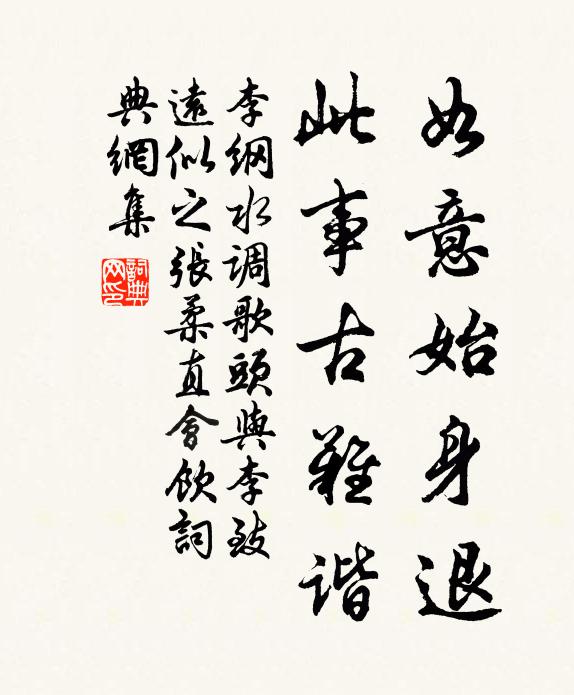 如意始身退
此事古難谐
李纲水调歌頭與李致
遠似之張柔直會飲詞
典網集
詞典网印